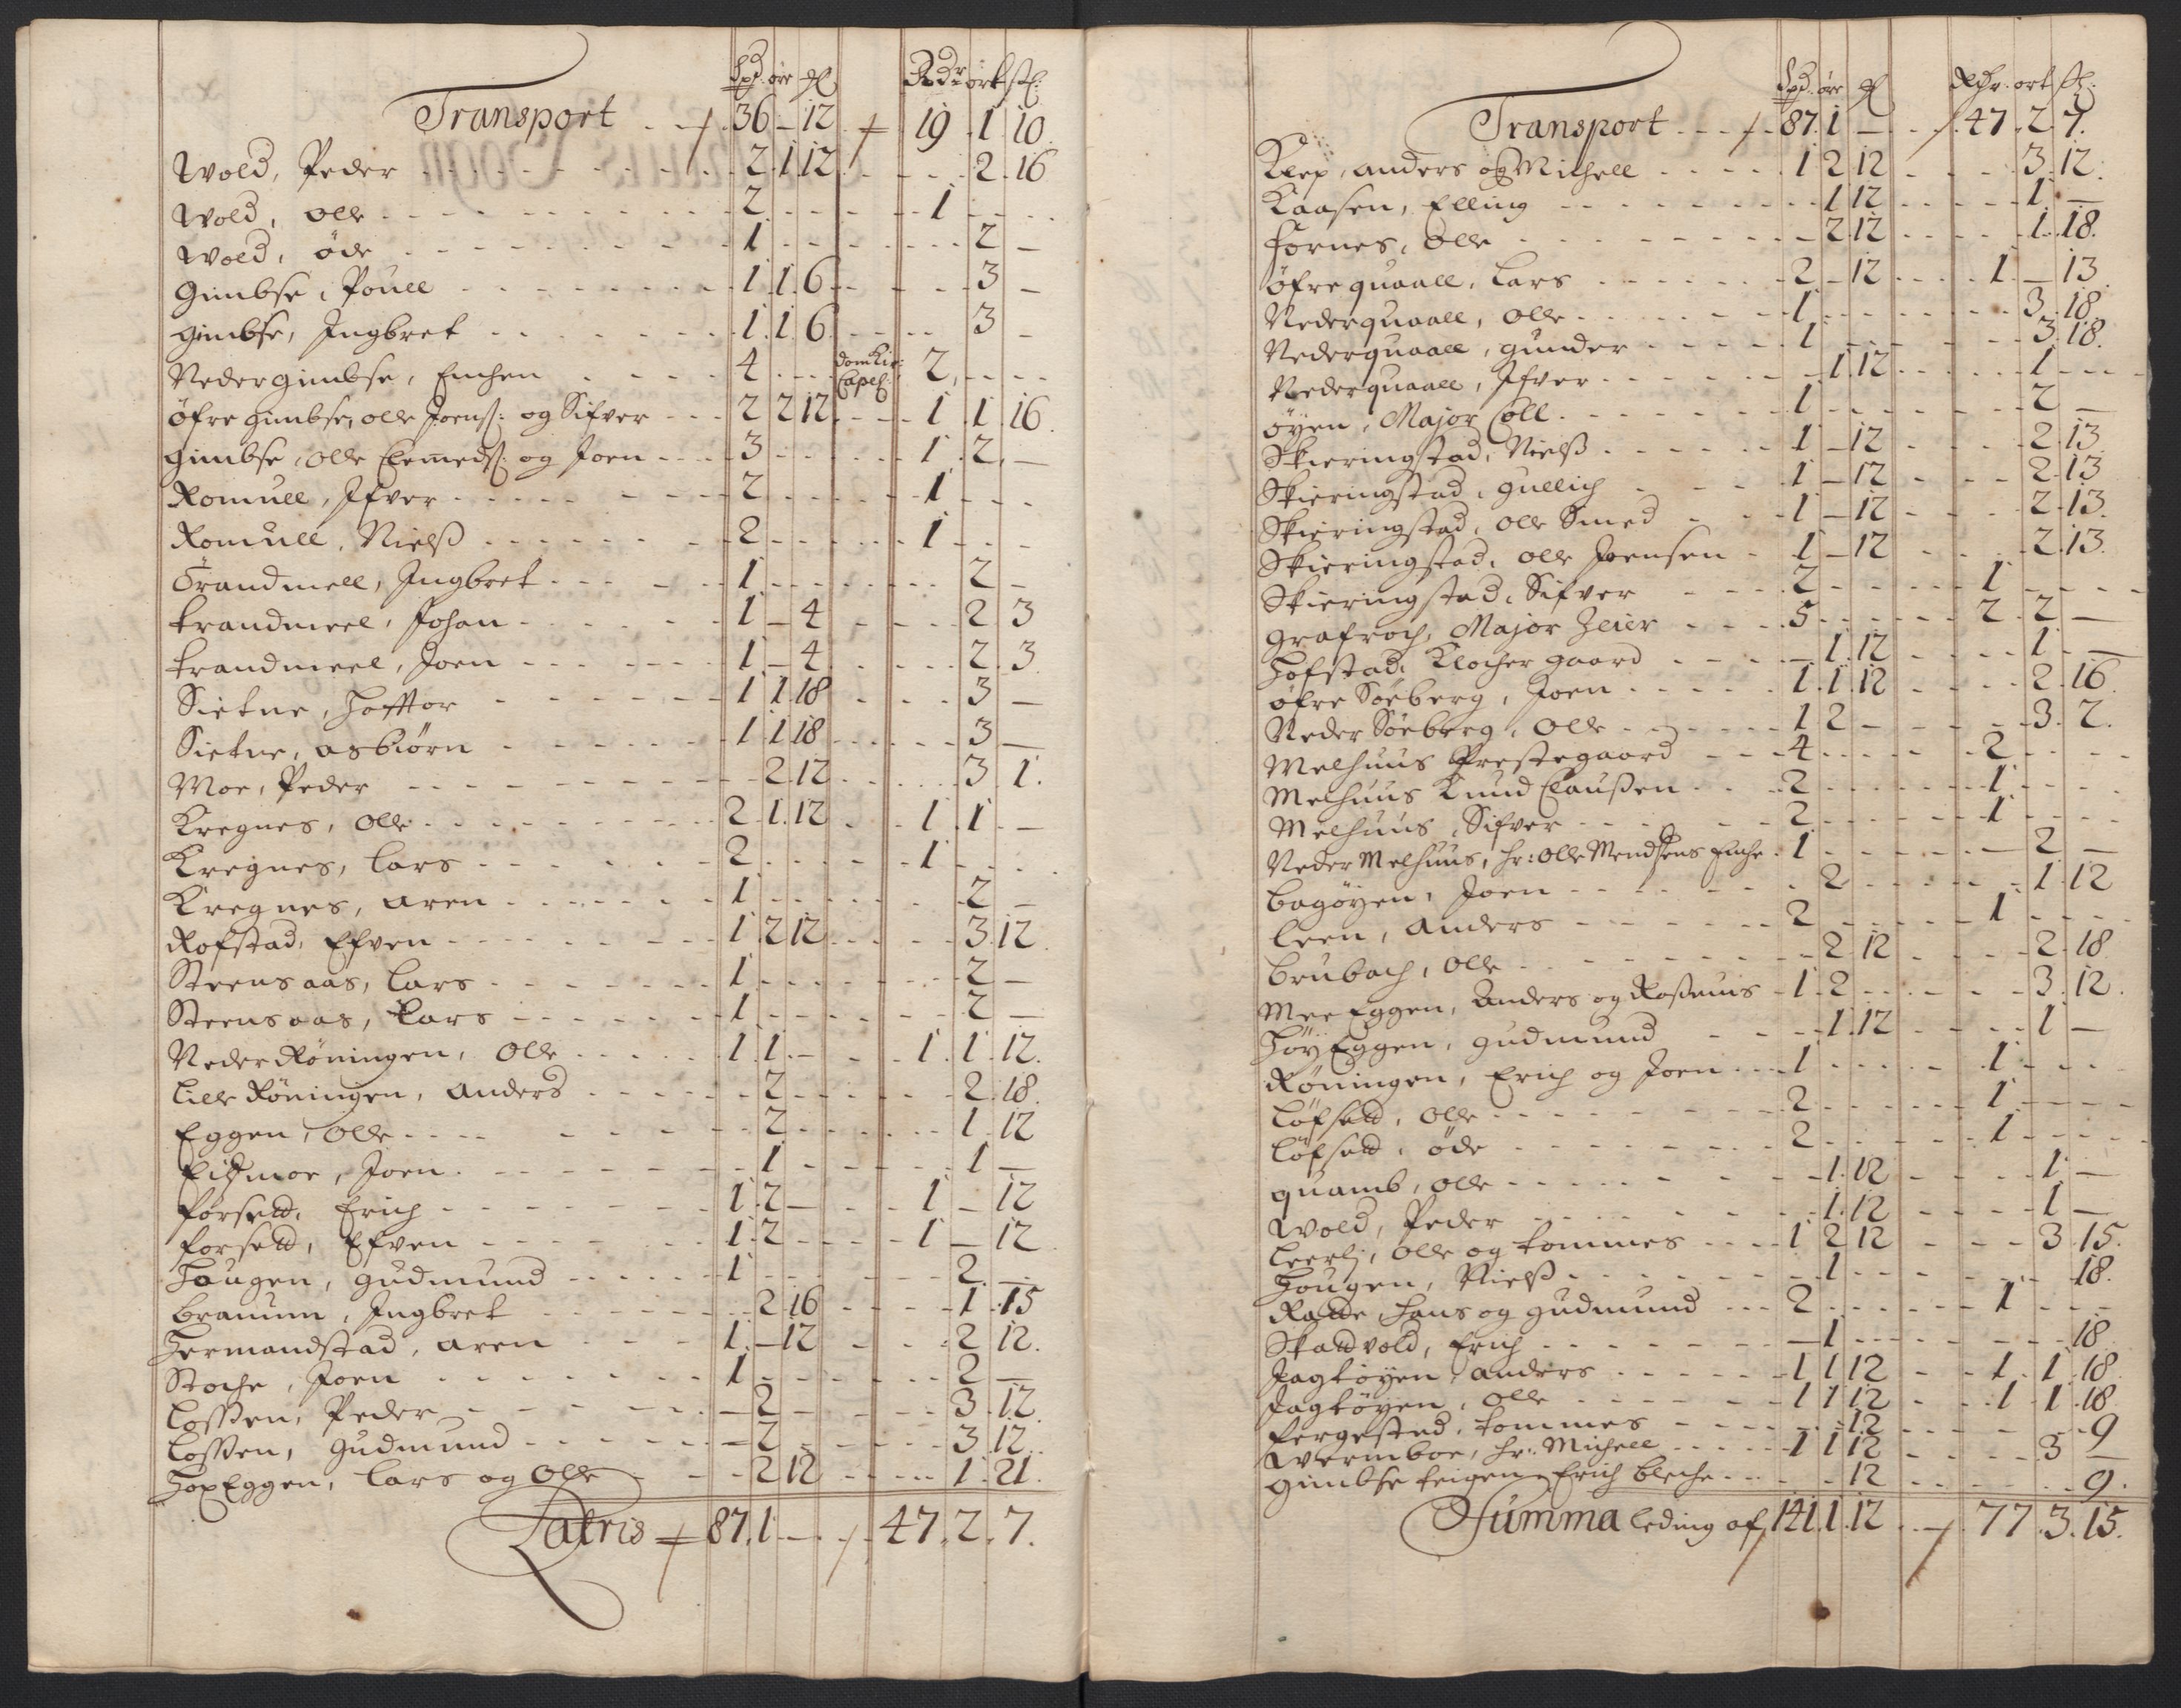 Spd: öre Rdr ort
Transport 36 – 12 19 1 10
Wold, Peder 2 1 12 2 16
Wold, Olle 2 1
Wold, öde 1 2 –
Gimbse, Pouell 1 1 6 3 –
Gimbse, Ingbret 1 1 6 3 –
Nedergimbse, Enchen 4 domKir: Capel: 2
öfre gimbse, olle Joenß: og Sifver 2 2 12 1 1 16
Gimbse, Olle Clemedß: og Joen 3 1 2 –
Romull, Ifver 2 1
Romull, Nielß 2 1
Trandmell, Ingbret 1 2 –
trandmeel, Johan 1 – 4 2 3
trandmeel, Joen 1 – 4 2 3
Sietne, Hafftor 1 1 18 3 –
Sietne, asbiörn 1 1 18 3 –
Moe, Peder 2 12 3 1
Kregnes, Olle 2 1 12 1 1 –
Kregnes, lars 2 1
Kregnes, aren 1 2 –
Rofstad, Efven 1 2 12 3 12
Steensaas, lars 1 2 –
Steensaas, Lars 1 2 –
Neder Röningen, Olle 1 1 – 1 1 12
lille Röningen, Anders 2 2 18
Eggen, Olle 2 1 12
Eidmoe, Joen 1 1 –
forsetd, Erich 1 2 – 1 – 12
forsetd, Efven 1 2 1 – 12
Hougen, gudmund 1 2 –
branum, Ingbret 2 16 1 15
Hermandstad, aren 1 – 12 2 12
Stoche, Joen 1 2 –
Loßen, Peder – 2 3 12
Loßen, gudmund – 2 3 12
HoxEggen, Lars og Olle 2 12 1 21
Latris 87 1 – 47 2 7
Spd: öre Rdr. ort
Transport 87 1 – 47 2 7
Klep, anders og Michell 1 2 12 3 12
Kaasen, Elling 1 12 1 –
Fornes, Olle – 2 12 1 18
öfre quaall, Lars 2 – 12 1 – 13
Nederquaall, Olle 1 3 18
Nederquaall, gunder 1 3 18
Nederquaall, Ifver 1 12 1
öyen, Major Coll 1 2 –
Skieringstad, Nielß 1 – 12 2 13
Skieringstad, gullich 1 – 12 2 13
Skieringstad, Olle Smed 1 – 12 2 13
Skieringstad, Olle Joensen 1 – 12 2 13
Skieringstad, Sifver 2 1
grafroch, Major Zeier 5 2 2 –
Hofstad, Klocher gaard – 1 12 1 –
öfre Söeberg, Joen 1 1 12 2 16
Neder Söeberg, Olle 1 2 – 3 2
Melhuus Prestegaard 4 2
Melhuus Knud Claußen 2 1
Melhuus, Sifver 2 1
Neder Melhuus, hr: Olle Mendßens Enche 1 2 –
bagöyen, Joen 2 1 12
leen, Anders 2 1
brubach, Olle – 2 12 2 18
Mee Eggen, Anders og Rasmus 1 2 3 12
Höy Eggen, gudmund 1 12 1 –
Röningen, Erich og Joen 1 1
Löfsetd, Olle 2 1
Löfsetd, öde 2 1
quamb, Olle 1 12 1 –
Wold, Peder 1 12 1 –
leerlj, Olle og tommes 1 2 12 3 15
Hougen, Nielß 1 18
Ratde, hans og gudmund 2 1
Skatdvold, Erich – 1 18
Jagtöyen, anders 1 1 12 1 1 18
Jagtöyen, Olle 1 1 12 1 1 18
fergestad, tommes 12 9
Wermboe, hr: Michell 1 1 12 3 –
gimbse teigen, Erich bleche 12 9
Summa leding af 141 1 12 77 3 15